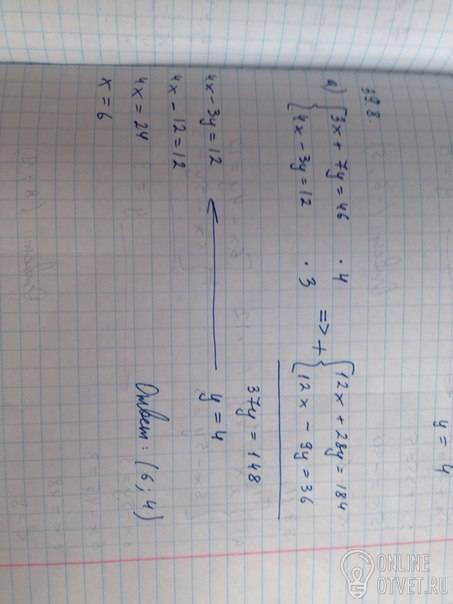 y = 4
39.8.
а) { 3x + 7y = 46 · 4 => + { 12x + 28y = 184
{ 4x - 3y = 12 · 3 { 12x - 9y = 36
37y = 148
y = 4
4x - 3y = 12
4x - 12 = 12
4x = 24
x = 6
Ответ: (6; 4)
ONLINE
OTVET.RU